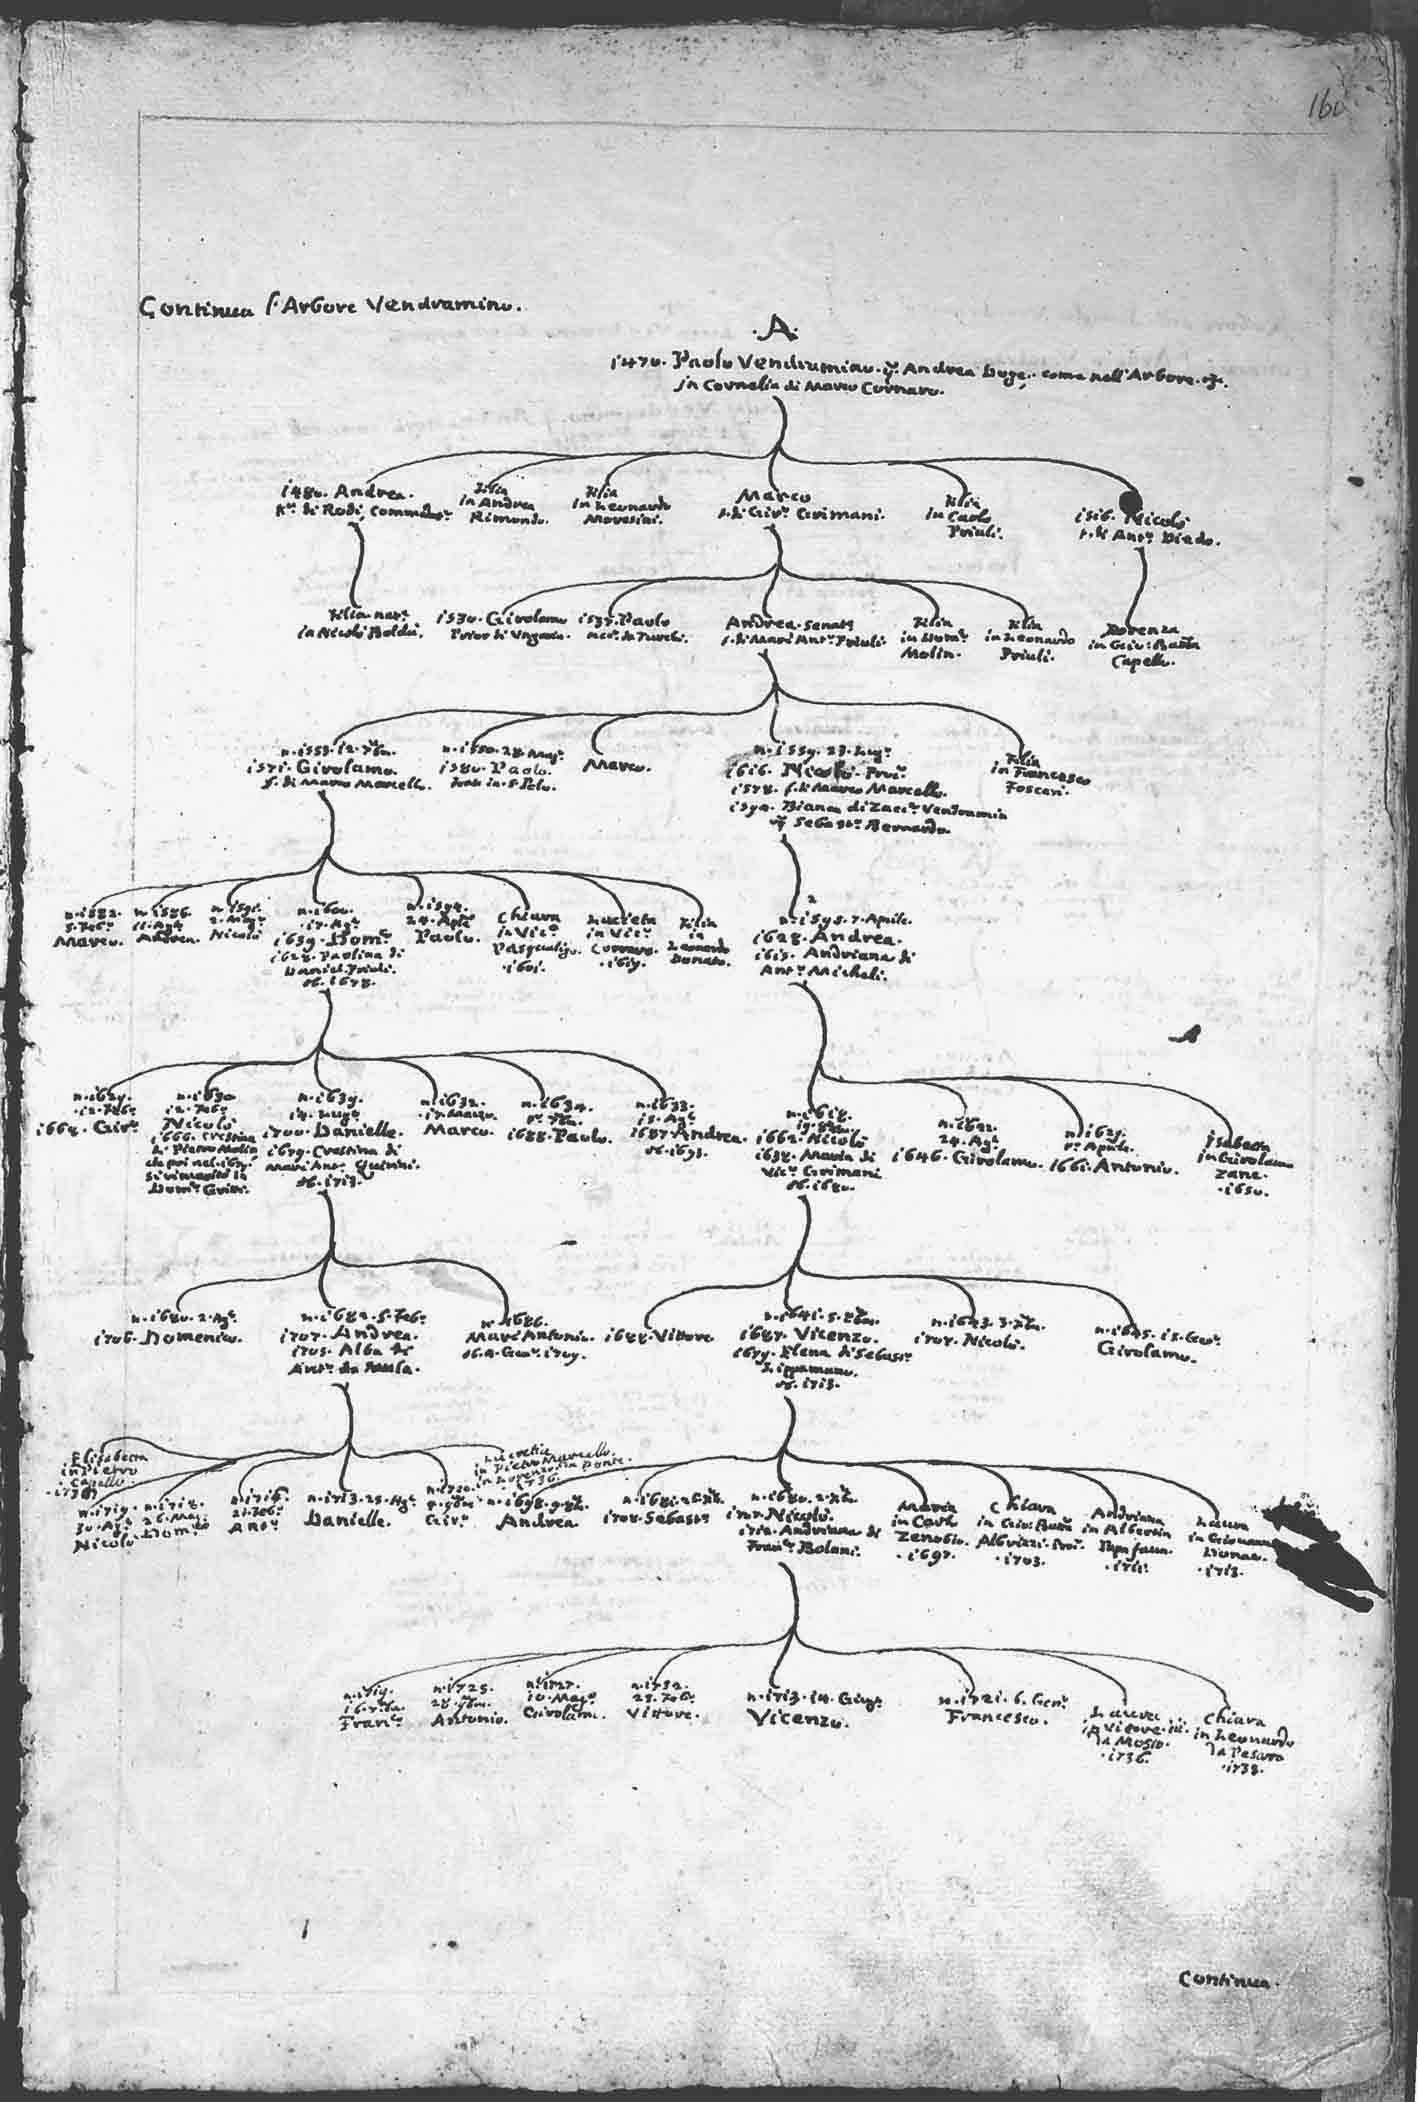 160
Continua l'Arbore Vendramino.
.A.
1470. Paolo Vendramino. q. Andrea Doge. come nell'Arbore.
in Cornelia di Marco Cornaro.
1480. Andrea.
Kr. di Rodi, Commdr.
Filia
in Andrea
Rimondo.
Filia
in Leonardo
Moresini.
Marco
f. di Girmo. Grimani.
Filia
in Carlo
Priuli.
1516. Nicolò
f. di Anto. Diedo.
Filia natle.
in Nicolò Boldù.
1530. Girolamo
Prior di Ungaria.
1537. Paolo
da Turchi.
Andrea. Senatr
f. di Marc' Anto. Priuli
Filia
in Domo.
Molin.
Filia
in Leonardo
Priuli.
Lorenza
in Gio: Batta
Capello.
n. 1553. 12. 7bre.
1571. Girolamo.
f. di Marco Marcello.
n. 1550. 28. Magio.
1580. Paolo.
Marco.
n. 1559. 23. Lugo.
1616. Nicolò. Procr.
1578. f. di Marco Marcello.
1594. Bianca di Zaccra. Vendramin
q. Sebastn. Bernardo.
Filia
in Francesco
Foscari.
n. 1582.
5. Febo.
Marco.
n. 1586.
11. Ago.
Andrea.
n. 1591.
2. Mago.
Nicolò
n. 1600.
17. Ago.
1639. Domo.
1628. Paolina di
Daniel Priuli.
ob. 1678.
n. 1594.
24. Aple.
Paolo.
Chiara
in Vico.
Pasqualigo.
.1601.
Lucieta
in Vico.
Correro.
.1619.
Filia
in
Leonardo
Donato.
n. 1595. 7. Aprile.
1628. Andrea.
1615. Andriana di
Anto. Micheli.
n. 1629.
12. Febo.
1664. Giro.
n. 1630
12. Febo.
Nicolò
1666. Crestina
di Pietro Molin
che poi nel 1671.
si rimaritò in
Domo. Gritti.
n. 1639.
14. Lugo.
1700. Danielle.
1679. Crestina di
Marc' Anto. Quirini.
ob. 1713.
n. 1632.
17. Marzo.
Marco.
n. 1634.
1688. Paolo.
n. 1633.
15. Ago.
1687. Andrea.
ob. 1693.
n. 1618.
19. 8bre.
1662. Nicolò
1638. Maria di
Vico. Grimani
ob. 1680.
n. 1622.
24. Ago.
1646. Girolamo.
n. 1625.
po. Aprile.
1661. Antonio.
Isabetta
in Girolamo
Zane.
.1650.
n. 1680. 2. Ago.
1706. Domenico.
n. 1682. 5. Febo.
1707. Andrea.
1705. Alba di
Anto. da Mula.
n. 1686.
Marc' Antonio.
ob. a Geno. 1709.
1688. Vittore
n. 1641. 5. 8bre.
1687. Vicenzo.
1679. Elena di Sebastn.
Lippamano.
ob. 1713.
n. 1643. 3. Xbre.
1707. Nicolò.
n. 1645. 15. Geno.
Girolamo.
Elisabetta
in Pietro
Capello.
.1738.
n. 1719.
30. Ago.
Nicolò
n. 1718.
26. Mago.
Domo.
n. 1716.
21. Febo.
Anto.
n. 1713. 25. Ago.
Danielle.
n. 1720.
Giro.
Lucretia
in Pietro Marcello.
in Lorenzo da Ponte.
.1736.
n. 1698. 9. 8bre.
Andrea.
n. 1681. 26. Xbre.
1708. Sebastn.
n. 1680. 2. Xbre.
1707. Nicolò.
1712. Andriana di
Franco. Bolani.
Maria
in Carlo
Zenobio.
.1697.
Chiara
in Gio: Batta
Albrizzi. Procr.
.1703.
Andriana
in Albertin
Papafava.
.1711.
Laura
in Giovanni
Donao.
.1713.
n. 1719.
Franco.
n. 1725.
Antonio.
n. 1727.
10. Mago.
Girolamo.
n. 1732.
23. Febo.
Vittore.
n. 1713. 14. Giugo.
Vicenzo.
n. 1721. 6. Geno.
Francesco.
Laura
in Vittore
da Mosto.
.1736.
Chiara
in Leonardo
da Pesaro
.1738.
Continua.